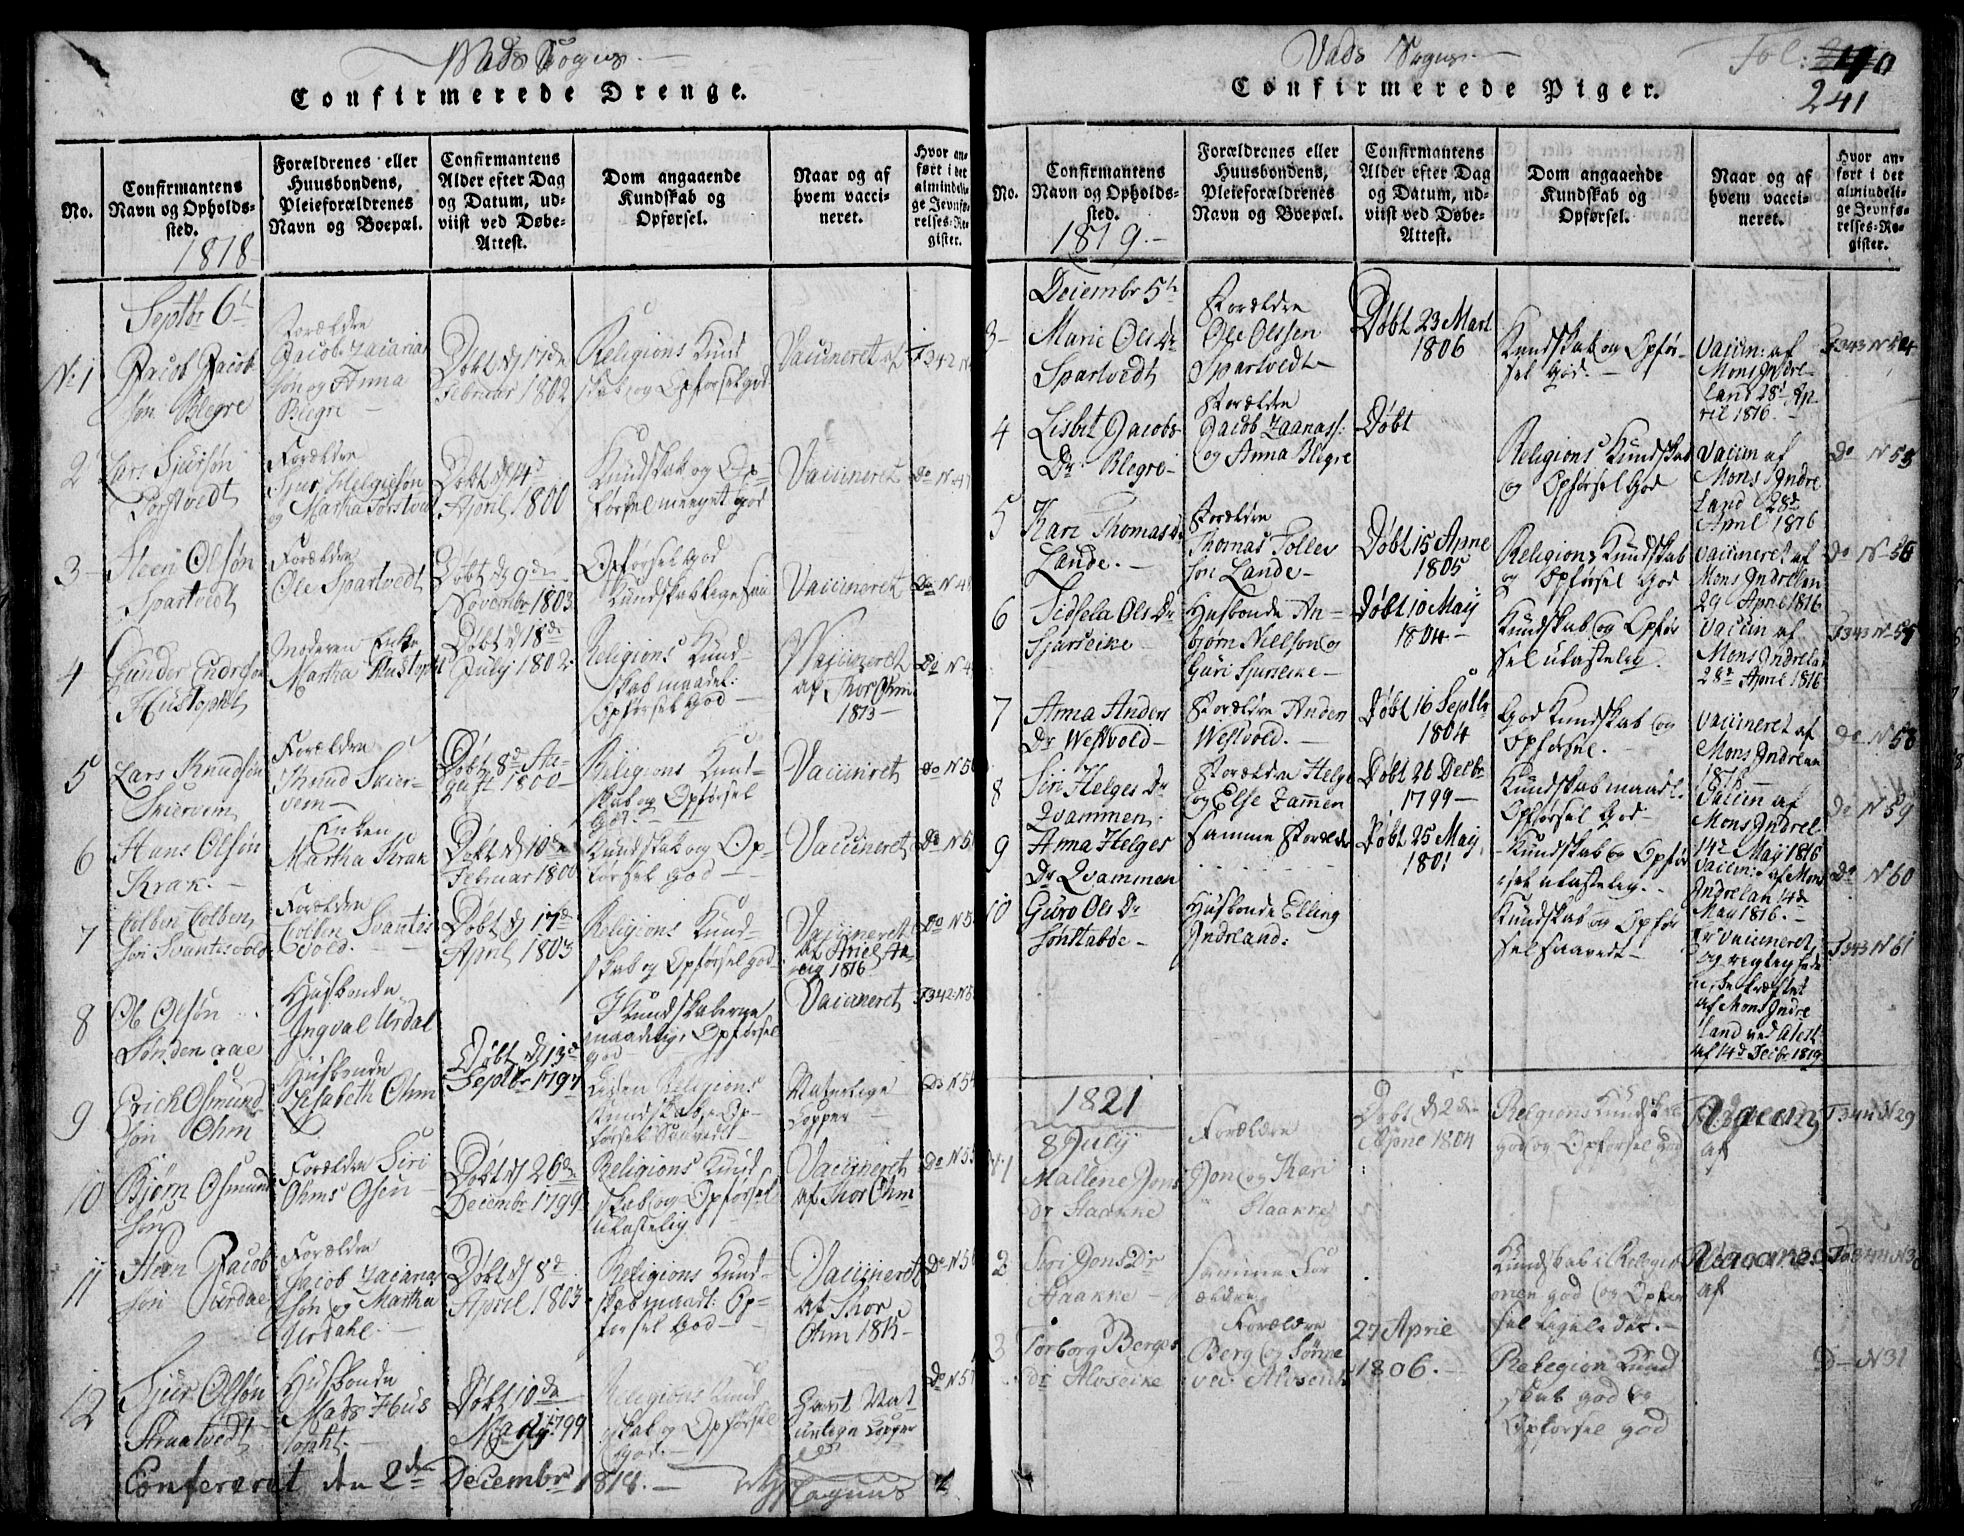 Vads Sogns.
Confirmerede Drenge.
No.
Confirmantens
Navn og Opholds-
sted.
1818
Forældrenes eller
Huusbondens,
Pleieforældrenes
Navn og Boepæl.
Confirmantens
Alder efter Dag
og Datum, ud-
viist ved Døbe-
Attest.
Dom angaaende
Kundskab og
Opførsel.
Naar og af
hvem vacci-
neret.
Hvor an-
ført i det
almindeli-
ge Jevnfø-
relses-Re-
gister.
Septbr 6te
No 1
Jacob Jacob
søn Blegre
Forældre
Jacob Zacarias
søn og Anna
Blegre
Døbt d 17de
Februar 1802
Religions Kund
skab og Opførsel god
Vaccineret
F 342 N
2
Lars Sjursøn
Forældre
Sjur Helgesøn
og Martha
Døbt d 14d
April 1800
Kundskab og Op-
førsel meeget god
Vaccineret
Do N 47
3
Steen Olsøn
Spartvedt
Forældre
Ole Spartvedt
Døbt d 9de
Novembr 1803
Opførsel God
Kundskab ligesaa
Vaccineret
Do N 4
4
Gunder Endresøn
Hustoft
Moderen Enke
Martha Hustoft
Døbt d 18de
July 1802
Religions Kund-
skab maadel:
Opførsel God
Vaccineret
af Thor Ohm
1813
Do N 4
5
Lars Knudsøn
Skiervem
Forældre
Knud Skier-
vem
Døbt 8de Au-
gust 1800
Religions Kund-
skab og Opførsel
God
Vaccineret
Do N 50
6
Hans Olsøn
Krak.
Enken
Martha Krak
Døbt d 10de
Februar 1800
Kundskab og Op-
førsel god
Vaccineret
Do N 5
7
Tolben Tolben
søn Svantesvold
Forældre
Tolben Svantes
vold.
Døbt d 17de
April 1803
Religions Kund-
skab og Opførsel god
Vaccineret
1816
Do N 5
8
Ole Olsøn
Sønden aae
Husbonde
Ingval Urdal
I Kundskaberne
maadelig, Opførsel
god
Vaccineret
F 342 N 5
9
Erich Osmund
søn Ohm
Husbonde
Lisabeth Ohm
Døbt d 13d
Septbr 1797
Liden Religions
Kundskab, Op-
førsel Saavidt
Naturlige
Copper
Do N 54
10
Bjørn Osmund
søn
Forældre Siri
Ohms Osen
Døbt d 26de
Decembr 1799
Religions Kund
skab og Opførsel
ulastelig
Vaccineret
af Thor Ohm
Do N 55
11
Steen Jacob
søn
Forældre
Jacob Zacarias
søn og Martha
Urdahl.
Døbt d 8d
April 1803
Religions Kund-
skab maadl: Op-
førsel God
Vaccineret
af Thor
Ohm 1815
Do N 56
12
Sjur Olsøn
Straatvedt
Husbonde
Mads Hus
tofht.
Døbt 10de
May 1799
Religions Kund
skab og Opførsel
God.
Havt Nat
urlige Copper
Do N 57
Confereret den 2den Decembr 1818.
Magnus
Vads Sogns
Fol: 240
241
Confirmerede Piger.
No.
Confirmantens
Navn og Opholds-
sted.
1819.
Forældrenes eller
Huusbondens,
Pleieforældrenes
Navn og Boepæl.
Confirmantens
Alder efter Dag
og Datum, ud-
viist ved Døbe-
Attest.
Dom angaaende
Kundskab og
Opførsel.
Naar og af
hvem vacci-
neret.
Hvor an-
ført i det
almindeli-
ge Jevnfø-
relses-Re-
gister.
Decembr 5te
3
Marie Ols Dr
Spartvedt
Forældre
Ole Olssen
Spartvedt
Døbt 23 Mart
1806
Kundskab og Opfør-
sel god.
Vaccin: af
Mons Indre-
land 28d Ap-
ril 1816
F 343 N 54
4
Lisbet Jacobs
Dr Blegre
Forældre
Jacob
og Anna Blegre
Døbt
Religions Kundskab
og Opførsel God
Vaccin af
Mons Indre
land 28d
April 1816
Do N 55
5
Kari Thomas Dr
Lande.
Forældre
Thomas Tollev
søn Lande
Døbt 15 Aprie
1805
Religions Kundskab
og Opførsel God
Vaccineret af
Mons Indrelan
29 April 1816
Do N 56
6
Sidsela Ols Dr
Sjurseike
Husbonde An-
bjørn Nielsen og
Guri Sjurseike
Døbt 10 Maij
1804
Kundskab og Opfør
sel ulastelig.
Vaccin af
Mons Indrelan
28d April 1816
F 343 N 57
7
Anna Anders
Dr Westvold
Forældre Anders
Westvold.
Døbt 16 Septbr
1804
God Kundskab og
Opførsel.
Vaccineret af
Mons Indrelan
1816
Do N 58
8
Siri Helges Dr
Qvammen
Forældre Helge
og Else
Døbt 26 Decbr
1799
Kundskab maadl.
Opførsel God
Vaccin af
Mons Indrel.
14d May 1816
Do N 59
9
Anna Helges
Dr Qvammen
Samme Forældre
Døbt 25 May
1801
Kundskab og Opfør
sel ulastelig.
Vaccin: af Mons
Indrelan 14d
May 1816.
Do N 60
10
Guro Ols Dr
Sønstabøe
Husbonde Elling
Indreland:
Kundskab og Opfør
sel saavidt
Er Vaccineret
og rigtighede
n bekræftet
af Mons Indre
land ved Atest
af 14d Decbr 1819
F 343 N 61
1821
8 Julij
N 1
Mallene Jons
Dr Haakke
Forældre
Jon og Kari
Haakke
Døbt d 2den
Aprie 1804
Religions Kundskab
god og Opførsel god
Vaccin
af
F 344 N 29
2
Siri Jons Dr
Haakke
Samme For
ældre
Kundskab i Religio
onen god og Opfør
sel ligeledes.
af
Fo 344 N 30
3
Torborg Bergs
Dr Alvseike
Forældre
Berg og Sønne
va Alvseik
27 Aprie
1806.
Religion Kund
skab god og
Opførsel god
D N 31